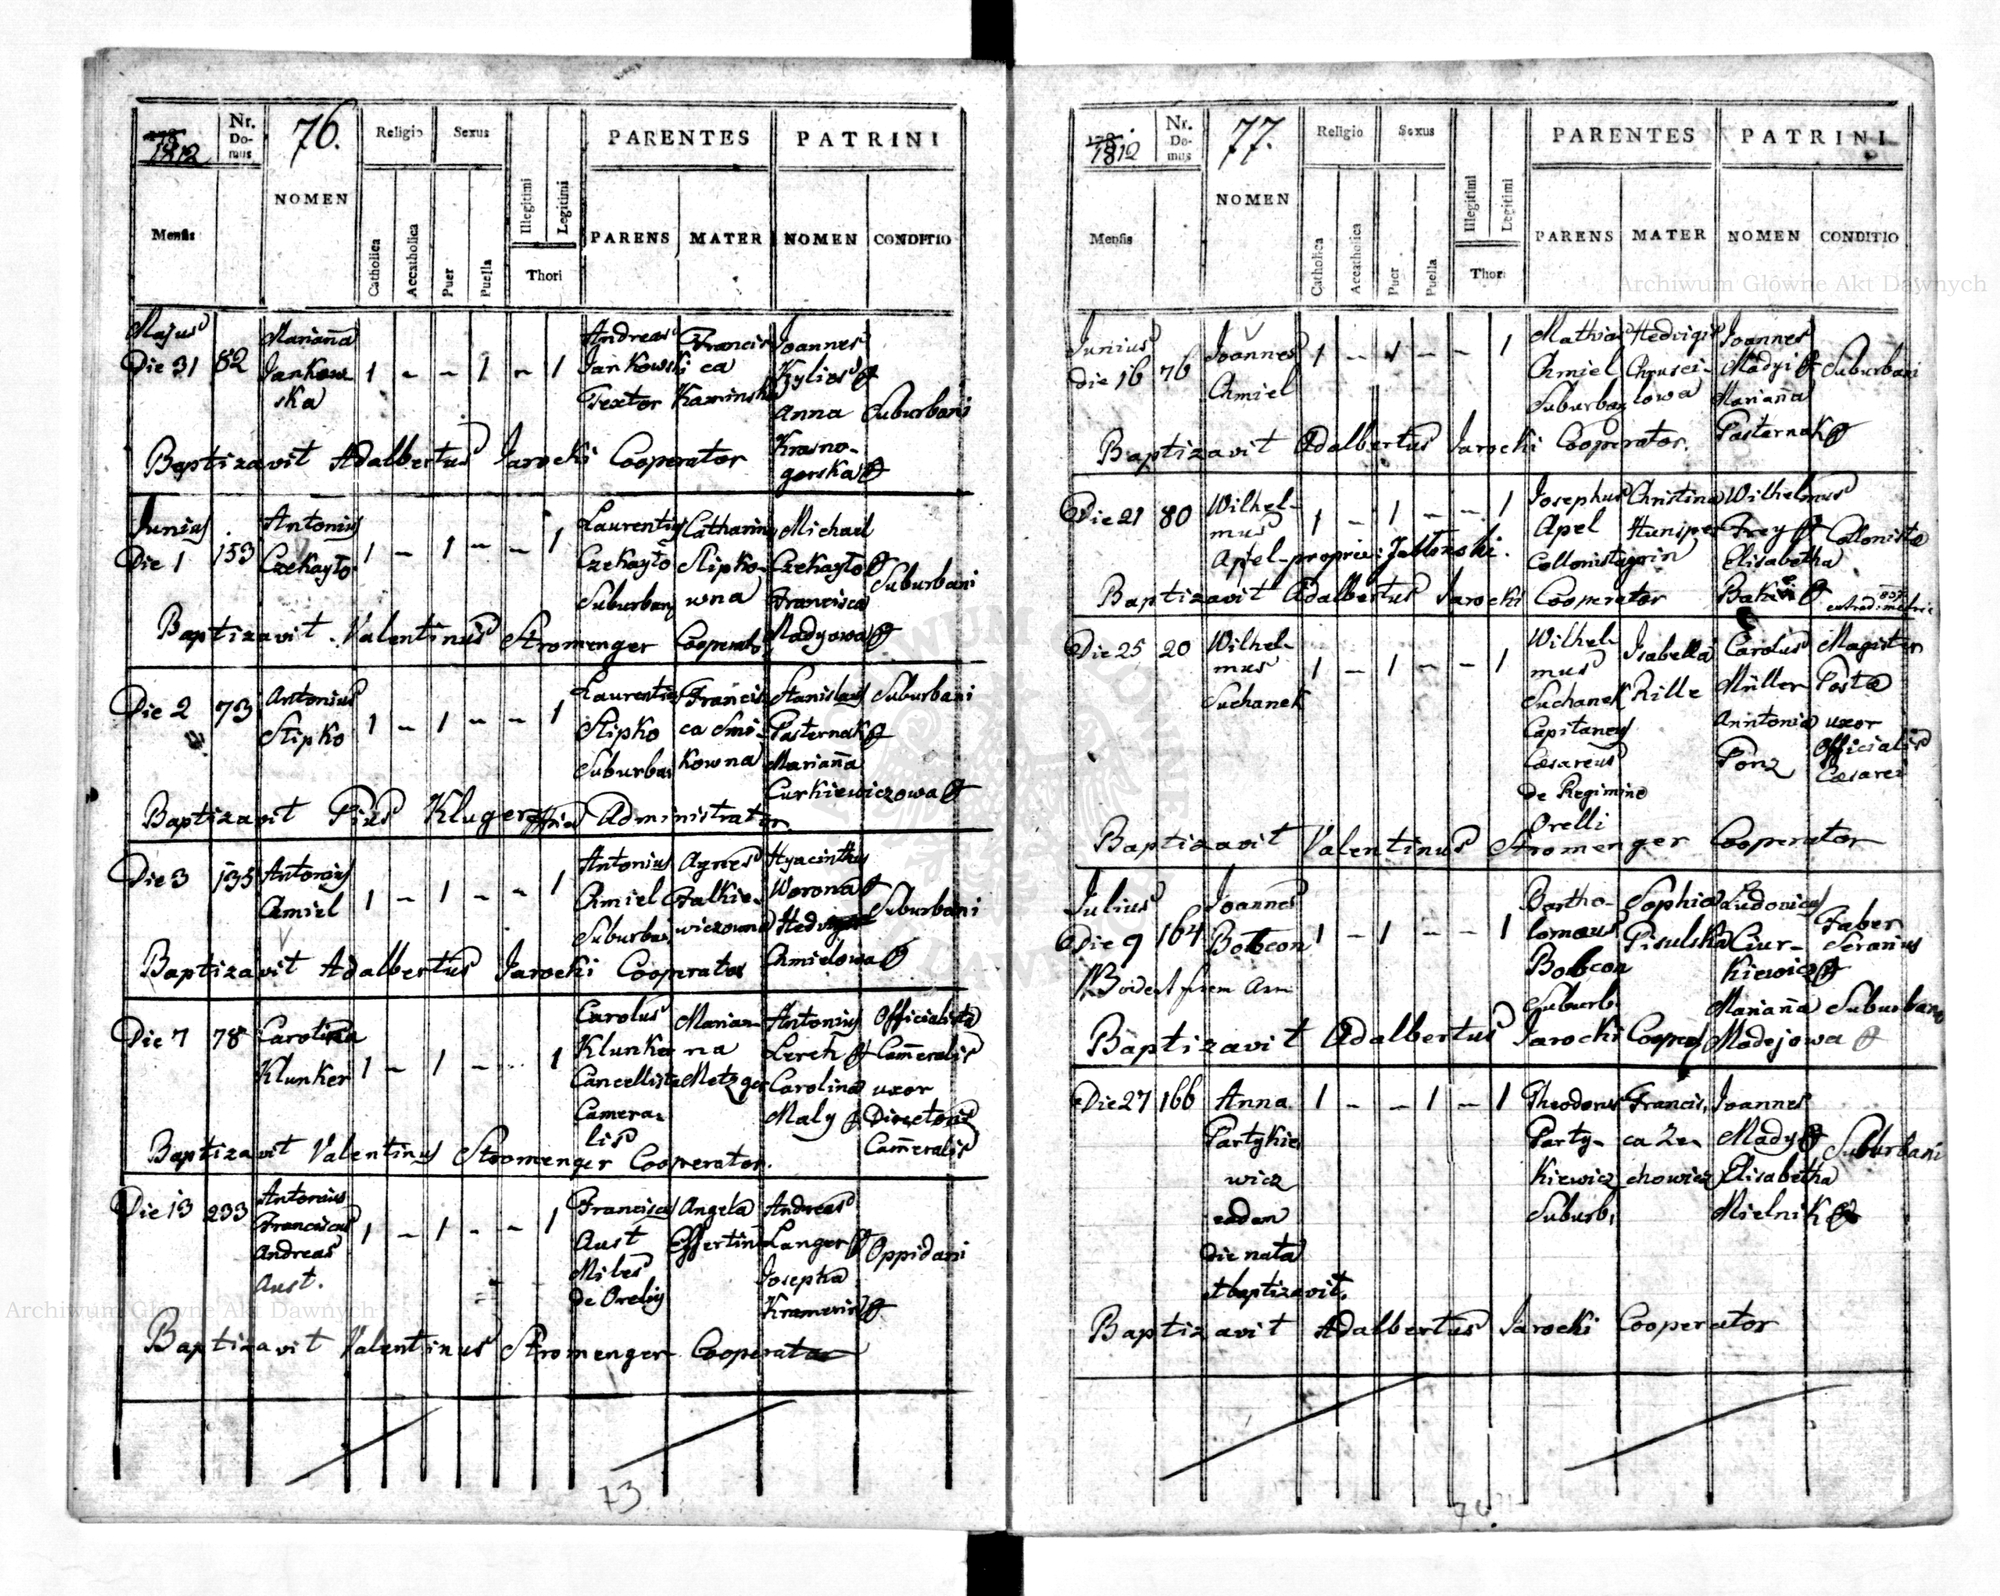 1812
Nr. Domus
76.
NOMEN
Religio
Sexus
PARENTES
PATRINI
Mensis
Catholica
Accatholica
Puer
Puella
Illegitimi
Legitimi
Thori
PARENS
MATER
NOMEN
CONDITIO
Majus Die 31
82
Marianna Jankowska
1 – – 1 – 1
Andreas Jankowski Textor
Francisca Kaminska
Joannes Kylios
Anna Krasnogorska
Suburbani
Baptizavit Adalbertus Jarocki Cooperator
Junius Die 1
153
Antonius Czekayło
1 – 1 – – 1
Laurentius Czekayło Suburbany
Catharina Slipkowna
Michael Czekayło
Francisca Madyowa
Suburbani
Baptizavit Valentinus Stromenger Cooperator
Die 2
73
Antonius Slipko
1 – 1 – – 1
Laurentius Slipko
Francisca Smikowna
Stanislaus Pasternak
Marianna Curkiewiczowa
Suburbani
Baptizavit Pius Kluger Administrator
Die 3
135
Antonius Chmiel
1 – 1 – – 1
Antonius Chmiel
Agnes Galkiewiczowna
Hyacinthus Worona
Chmielowa
Suburbani
Baptizavit Adalbertus Jarocki Cooperator
Die 7
78
Carolina Klunker
1 – 1 – 1
Carolus Klunker Cancellista Cameralis
Marianna Metzger
Antonius Lerch
Carolina Maly
Officialista Cameralis
uxor Directoris Cameralis
Baptizavit Valentinus Stromenger Cooperator.
Die 13
233
Antonius Franciscus Andreas Aust.
1 – 1 – – 1
Franciscus Aust Miles de Orelly
Angela Effertin
Andreas Langer
Josepha Kramerin
Oppidani
Baptizavit Valentinus Stromenger Cooperator
73
1812
Nr. Domus
77.
NOMEN
Religio
Sexus
PARENTES
PATRINI
Mensis
Catholica
Accatholica
Puer
Puella
Illegitimi
Legitimi
Thori
PARENS
MATER
NOMEN
CONDITIO
Junius die 16
76
Joannes Chmiel
1 – 1 – – 1
Mathias Chmiel
Hedvigis Chruscilowa
Joannes Madyi
Marianna Pasternak
Suburbani
Baptizavit Adalbertus Jarocki Cooperator.
Die 21
80
Wilhelmus Apel – proprie: Jabłonski.
1 – 1 – – 1
Josephus Apel Collonista
Christina
Wilhelmus Frey
Elisabetha
Collonista
Baptizavit Adalbertus Jarocki Cooperator
Die 25
20
Wilhelmus Suchanek
1 – 1 – – 1
Wilhelmus Suchanek Capitaneus Caesareus de Regimine Orelli
Isabella Rille
Carolus Müller
Anntonia Ponz
Magister Posta
uxor Officialis Caesarei
Baptizavit Valentinus Stromenger Cooperator
Julius Die 9
164
Joannes Bobcon
1 – 1 – – 1
Bartholomaus Bobcon Suburb.
Sophia Pisulska
Ludovicus Ciurkiewicz
Marianna Madejowa
Faber
Suburbana
Baptizavit Adalbertus Jarocki
Die 27
166
Anna Partykiewicz eadem die nata et baptizavit.
1 – – 1 – 1
Theodorus Partykiewicz Suburb.
Francisca Zechowicz
Joannes Mady
Elisabetha Mielnik
Suburbani
Baptizavit Adalbertus Jarocki Cooperator
Archiwum Główne Akt Dawnych
Archiwum Główne Akt Dawnych